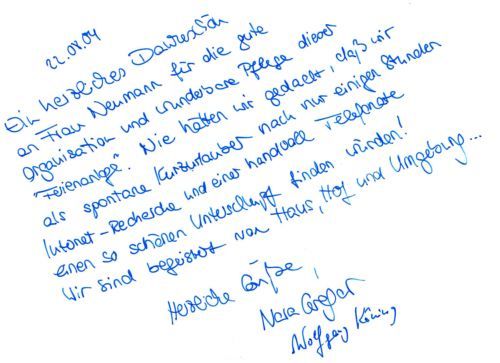 22.08.04
Ein herzliches Dankeschön
an Frau Neumann für die gute
Organisation und wunderbare Pflege dieser
"Ferienanlage". Nie hätten wir gedacht, daß wir
als spontane Kurzurlauber nach nur einigen Stunden
Internet-Recherche und einer handvoll Telefonate
einen so schönen Unterschlupf finden würden!
Wir sind begeistert von Haus, Hof und Umgebung...
Herzliche Grüße,
Nora
Wolfgang König